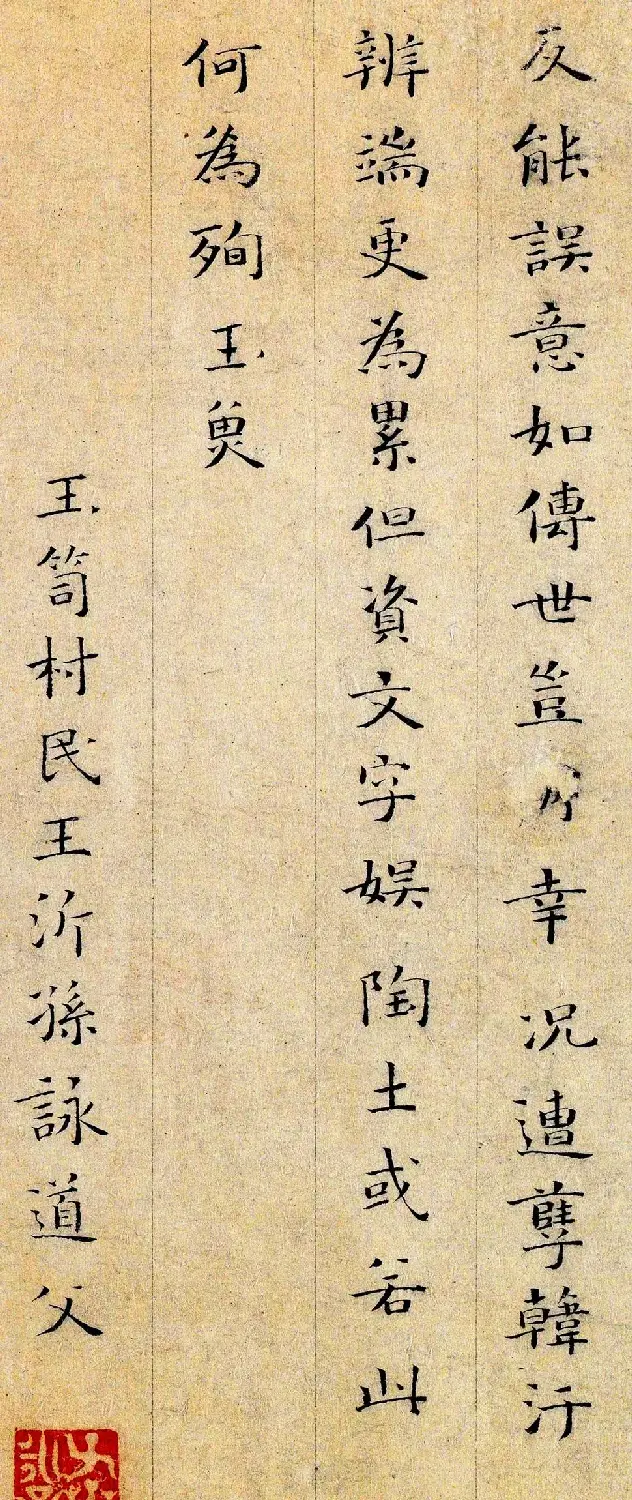 反能誤意如傳世豈幸况遭孽韓汙
辨端更為累但資文字娛陶土或若此
何為殉玉𠔃
玉笥村民王沂孫詠道父